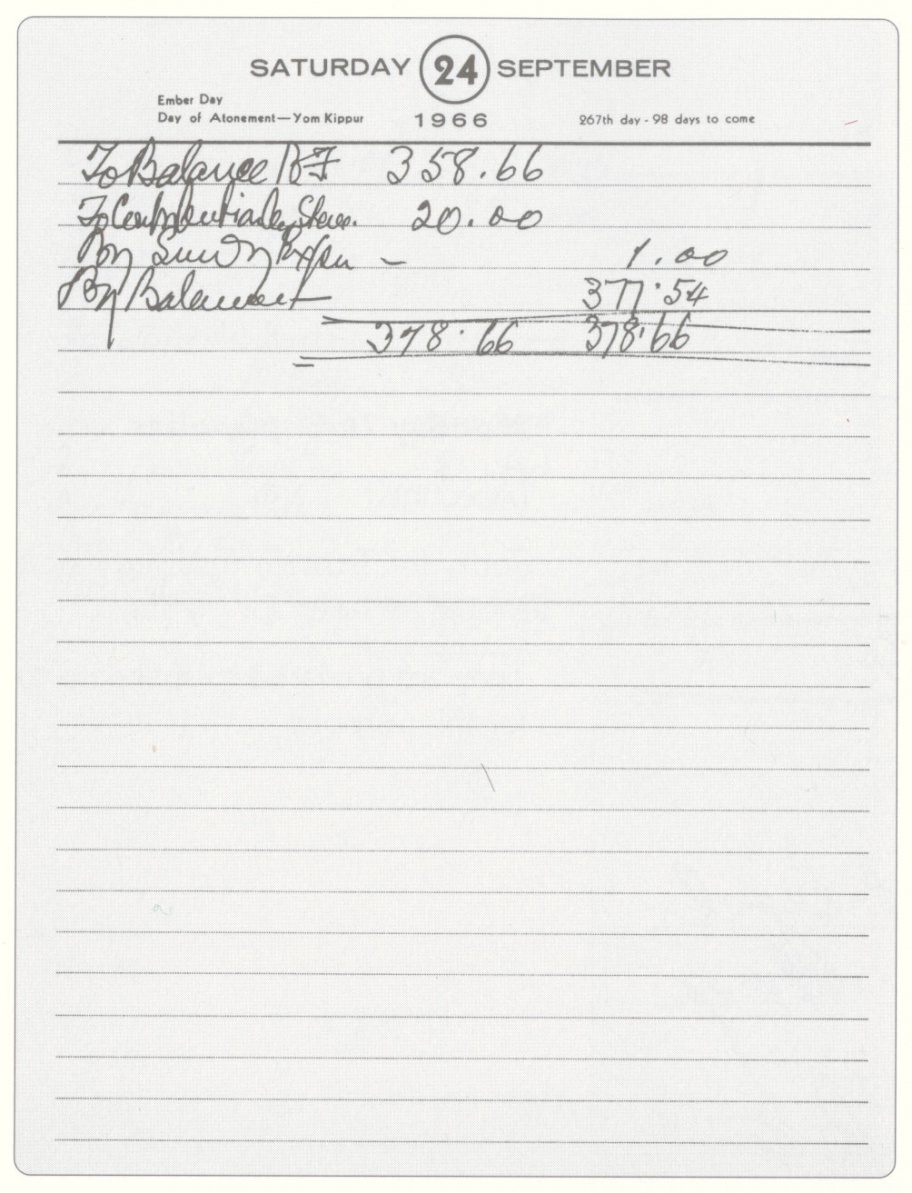 SATURDAY 24 SEPTEMBER
Ember Day
Day of Atonement—Yom Kippur
1966
267th day - 98 days to come
To Balance B F 358.66
To Contribution by Steve. 20.00
By Sundry Expen — 1.00
By Balance 377.54
378.66 378.66